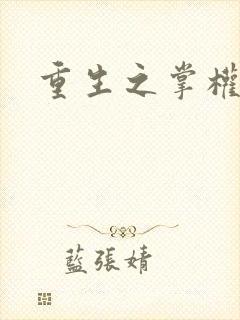 重生之掌權
藍張婧